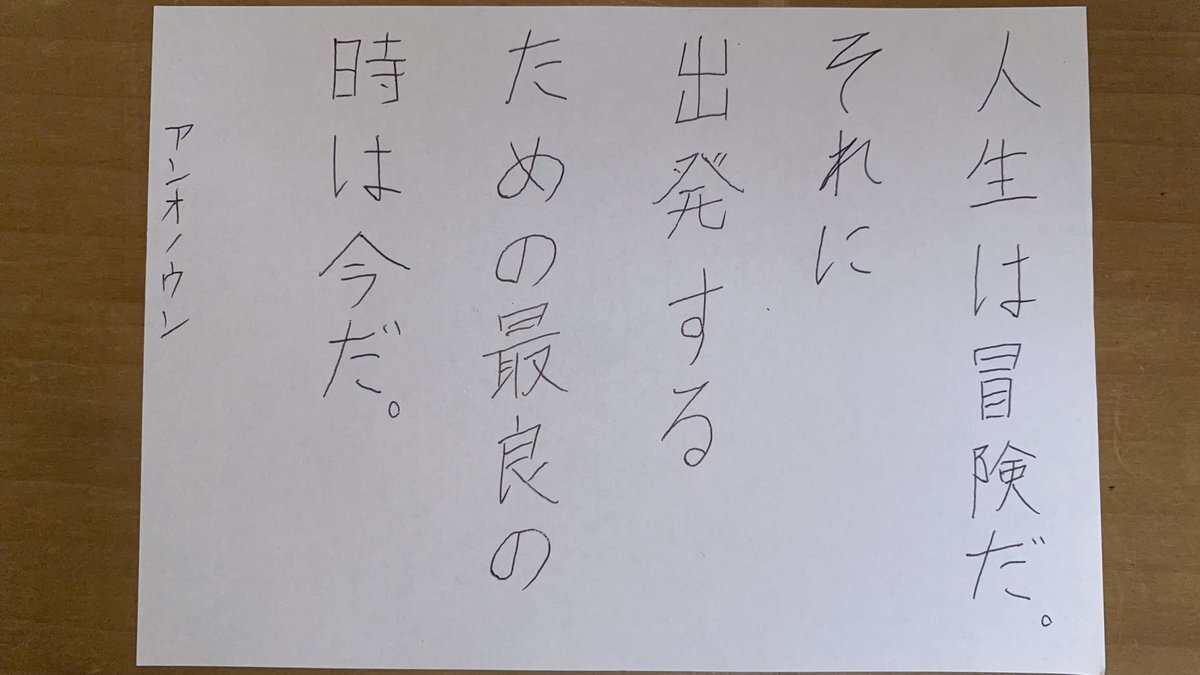 人生は冒険だ。
それに
出発する
ための最良の
時は今だ。
アンオノウン